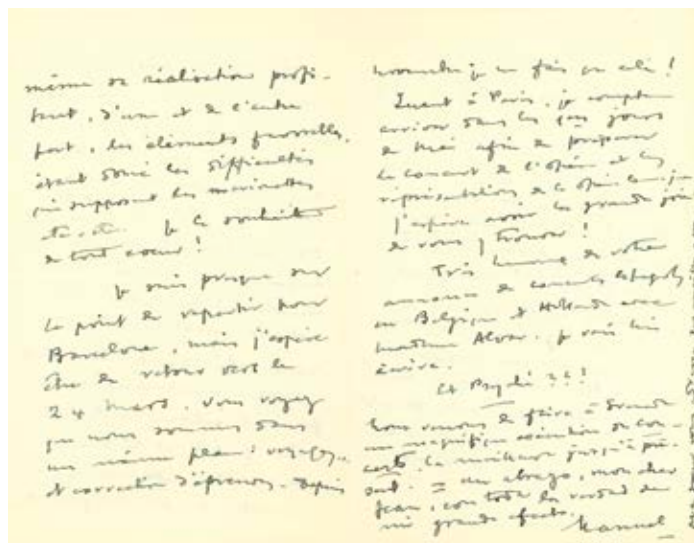 même sa réalisation profi-
tant, d'une et de l'autre
part, les éléments
étant donné les difficultés
que supposent les marionettes
etc. etc. Je le souhaite
de tout cœur!
Je suis presque sur
le point de repartir pour
Barcelone, mais j'espère
être de retour vers le
24 mars. Vous voyez
que nous sommes dans
un même plan: voyages..
et correction d'épreuves. Depuis
je ne fais que cela!
Quant à Paris, je compte
arriver dans les jours
de Mai afin de préparer
le concert de l'Opéra et les
représentations de
J'espère avoir la grande joie
de vous y trouver!
Très de votre
annonce de concerts
en Belgique et Hollande avec
Madame Alvar. Je vais lui
écrire.
Et Psyché ???
Nous venons de faire à
une magnifique exécution du Con-
certo. La meilleure jusqu'à pré-
sent. = Un abrazo, mon cher
Jean, con toda la verdad de
mi grande afecto.
Manuel